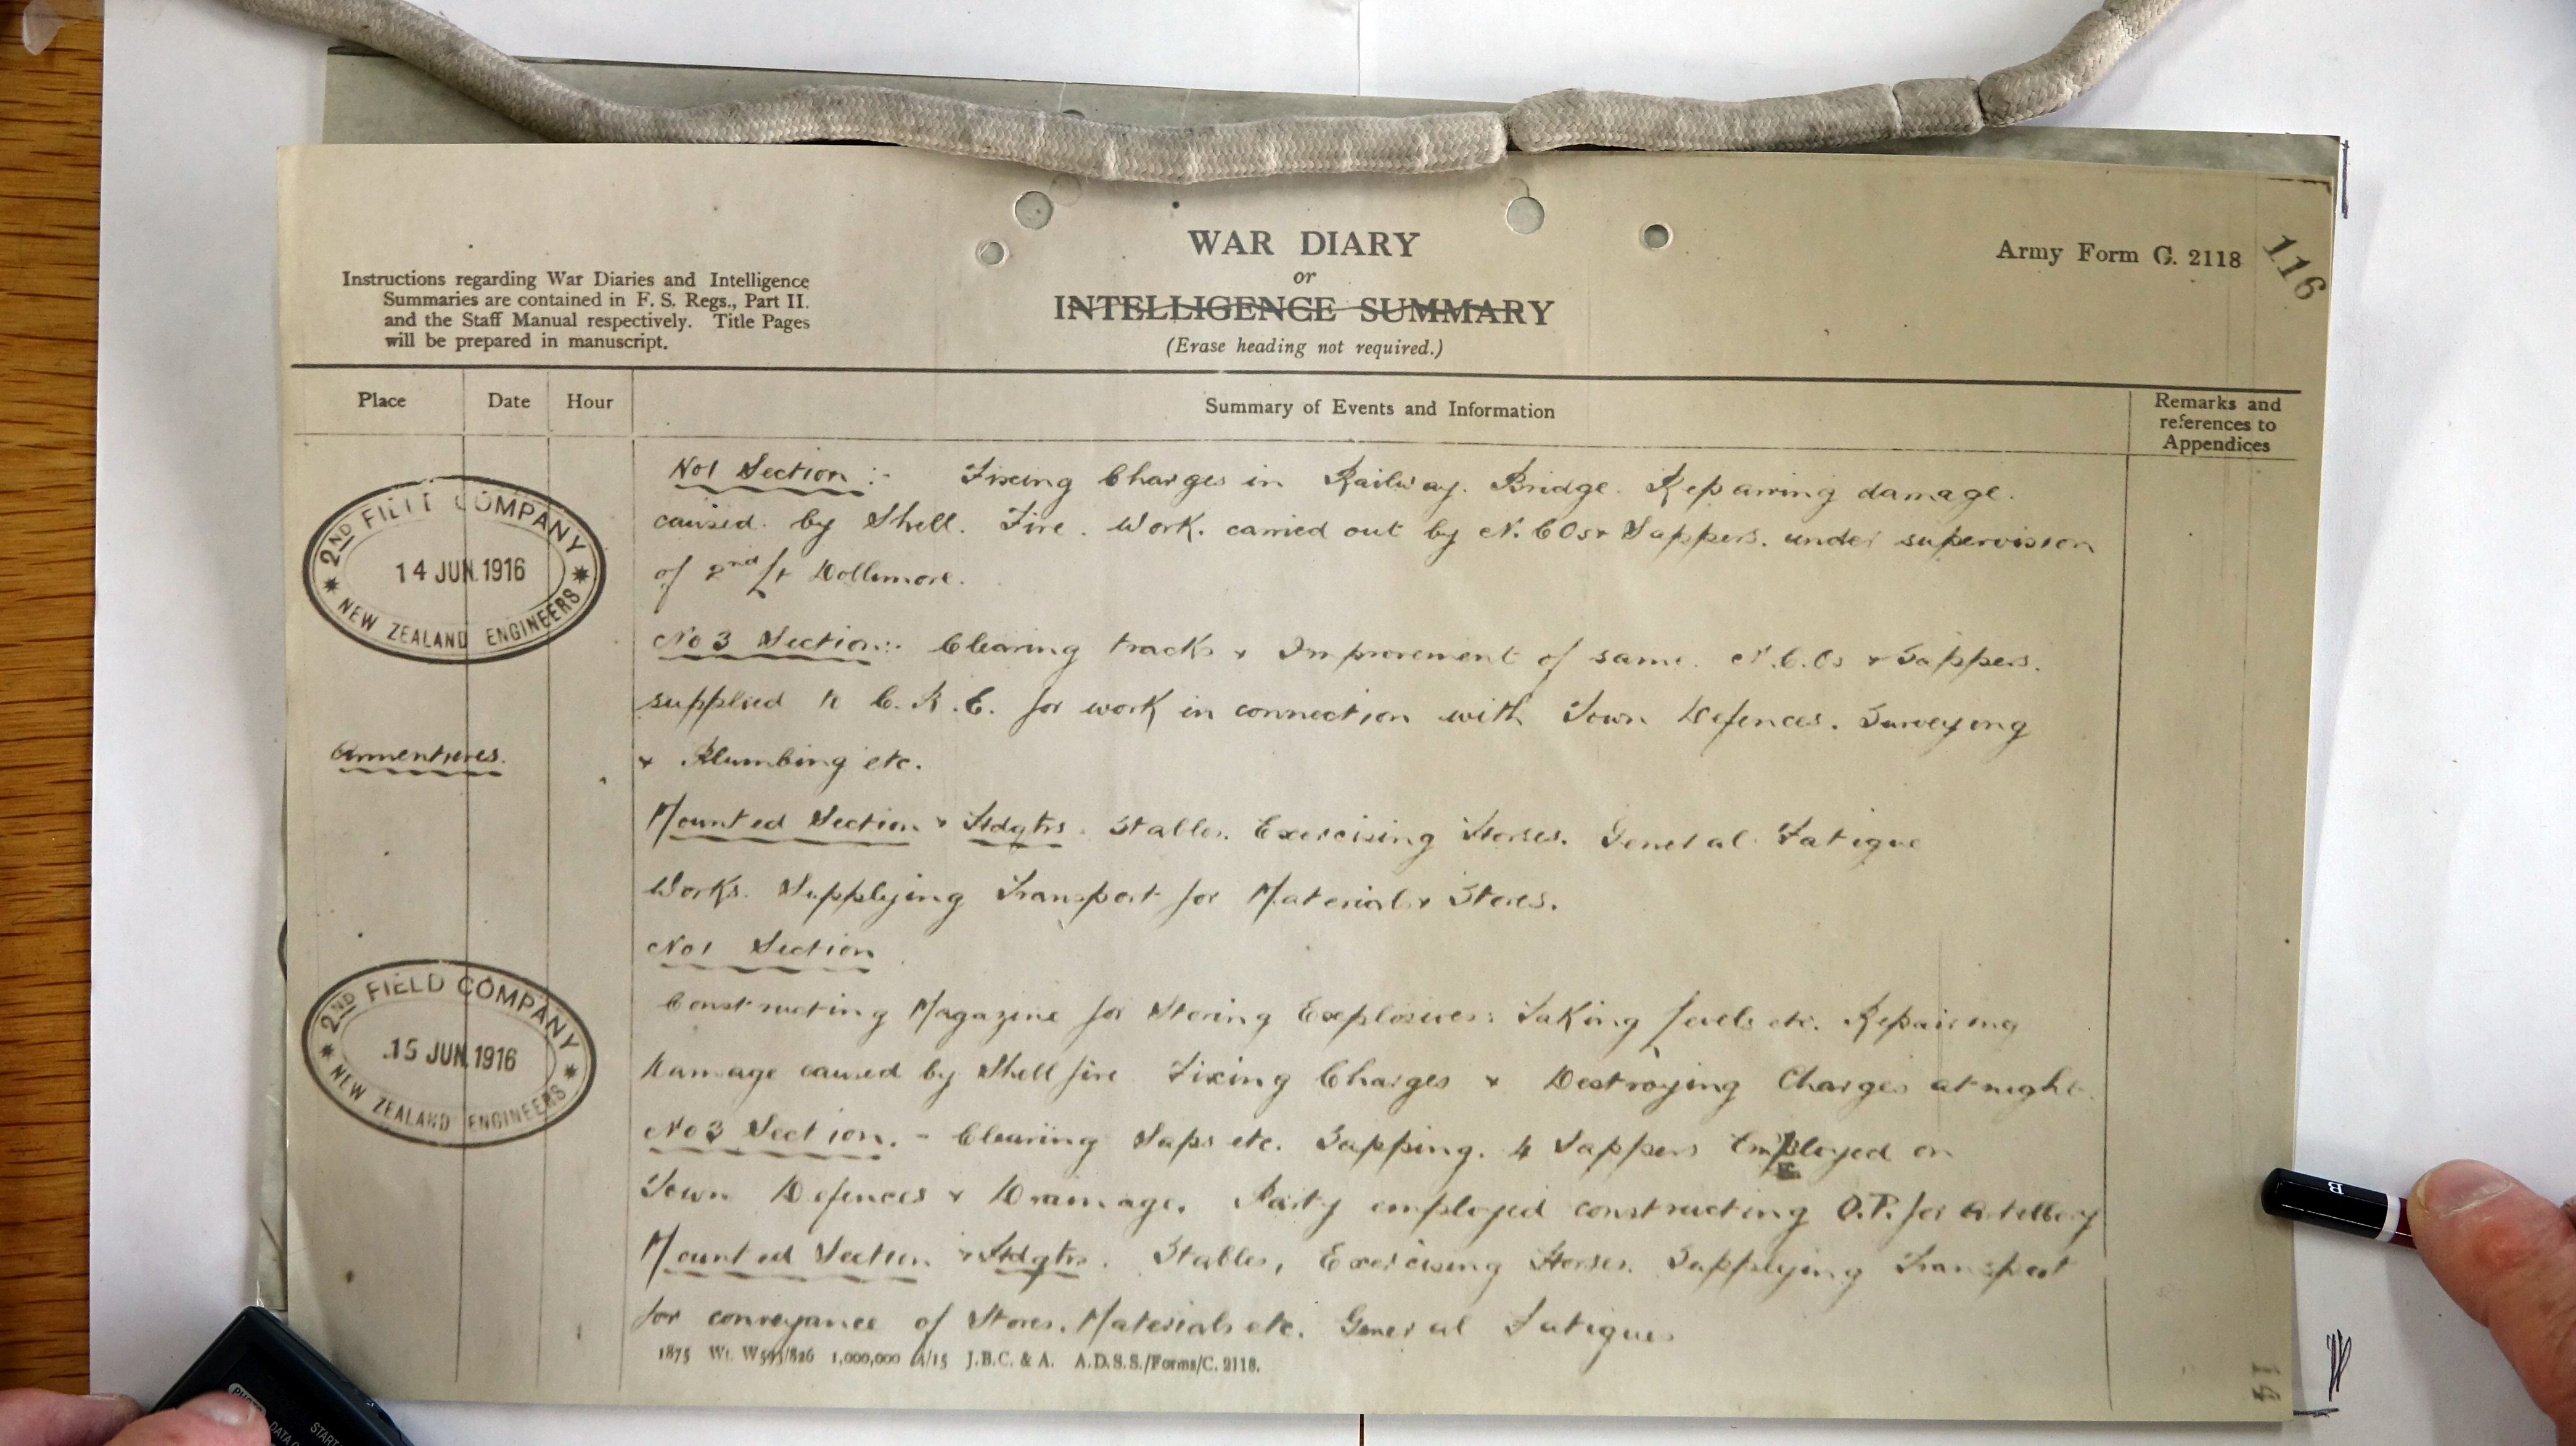 WAR DIARY
or
INTELLIGENCE SUMMARY
(Erase heading not required.)
Army Form C. 2118
116
Instructions regarding War Diaries and Intelligence
Summaries are contained in F. S. Regs., Part II.
and the Staff Manual respectively. Title Pages
will be prepared in manuscript.
Place Date Hour Summary of Events and Information Remarks and
references to
Appendices
2ND FIELD COMPANY
14 JUN. 1916
NEW ZEALAND ENGINEERS
No1 Section :- Fixing Charges in Railway. Bridge. Repairing damage.
caused. by Shell. Fire. Work. carried out by N.COs & Sappers. under supervision
of 2nd/Lt Dollimore.
No 3 Section:- Clearing tracks & Improvement of same. N.C.Os & Sappers.
supplied to C.R.E. for work in connection with Town Defences. Surveying
Armentieres.
& Plumbing etc.
Mounted Section & Hdqtrs. Stables. Exercising Horses. General Fatigue
Works. Supplying Transport for Material & Stores.
2ND FIELD COMPANY
15 JUN. 1916
NEW ZEALAND ENGINEERS
No1 Section
Constructing Magazine for Storing Explosives: Taking levels etc. Repairing
Damage caused by Shell fire Fixing Charges & Destroying Charges at night.
No3 Section. - Clearing Saps etc. Sapping. 4 Sappers Employed on
Town Defences & Drainage. Party employed constructing O.P. for Artillery
Mounted Section & Hdqtrs. Stables, Exercising Horses. Supplying Transport
for conveyance of Stores. Materials etc. General Fatigues
1875 Wt. W593/826 1,000,000 4/15 J.B.C. & A. A.D.S.S./Forms/C. 2118.
14
B
START